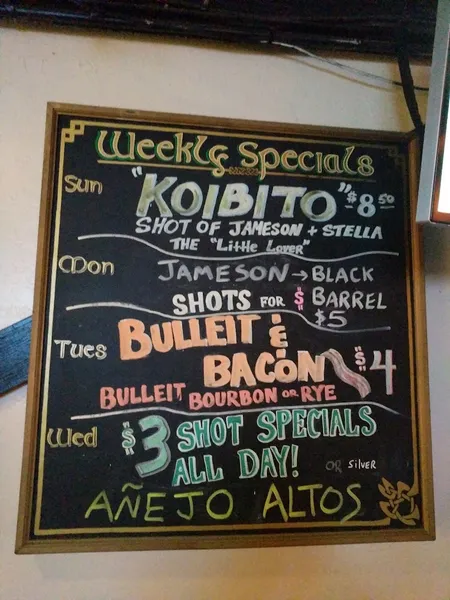 Weekly Specials
Sun "KOIBITO" - $8.50
SHOT OF JAMESON + STELLA
THE "Little Lover"
Mon JAMESON → BLACK
SHOTS FOR $ BARREL
$5
Tues BULLEIT &
BACON $4
BULLEIT BOURBON OR RYE
Wed $3 SHOT SPECIALS
ALL DAY!
OR SILVER
AÑEJO ALTOS